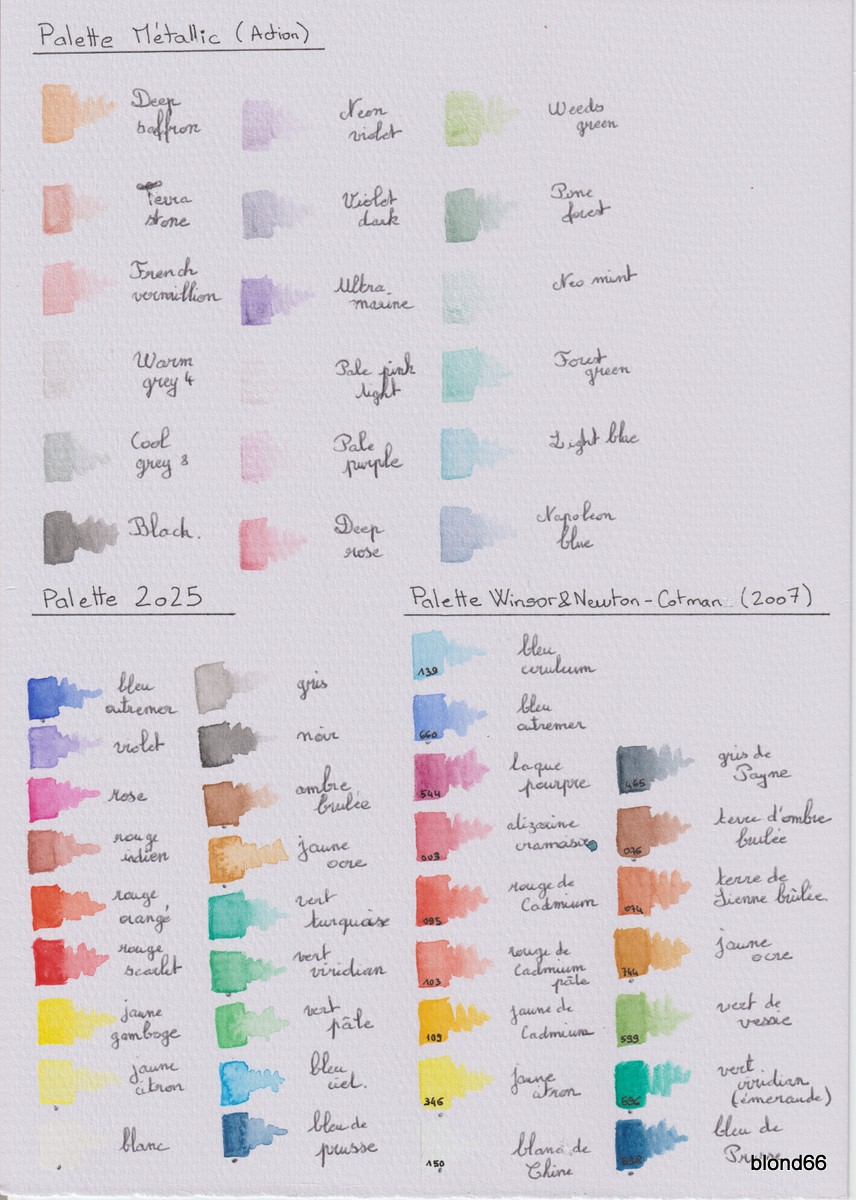 Palette Métallic (Action)
Deep
saffron
Terra
stone
French
vermillion
Warm
grey 4
Cool
grey 8
Black.
Neon
violet
Violet
dark
Ultra-
marine
Pale pink
light
Pale
purple
Deep
rose
Weeds
green
Pine
forest
Neo mint
Forest
green
Light blue
Napoleon
blue
Palette 2025
bleu
outremer
violet
rose
rouge
indien
rouge
orangé
rouge
scarlet
jaune
gamboge
jaune
citron
blanc
gris
noir
ombre
brulée
jaune
ocre
vert
turquoise
vert
viridian
vert
pâle
bleu
ciel.
bleu de
prusse
Palette Winsor&Newton-Cotman (2007)
139
bleu
660
bleu
outremer
544
laque
pourpre
003
alizarine
095
rouge de
Cadmium
103
rouge de
Cadmium
pâle
109
jaune de
Cadmium
346
jaune
citron
150
blanc de
Chine
465
gris de
Payne
076
terre d'ombre
brulée
074
terre de
Sienne brûlée.
744
jaune
ocre
599
vert de
vessie
696
vert
viridian
(émeraude)
bleu de
Prusse
blond66